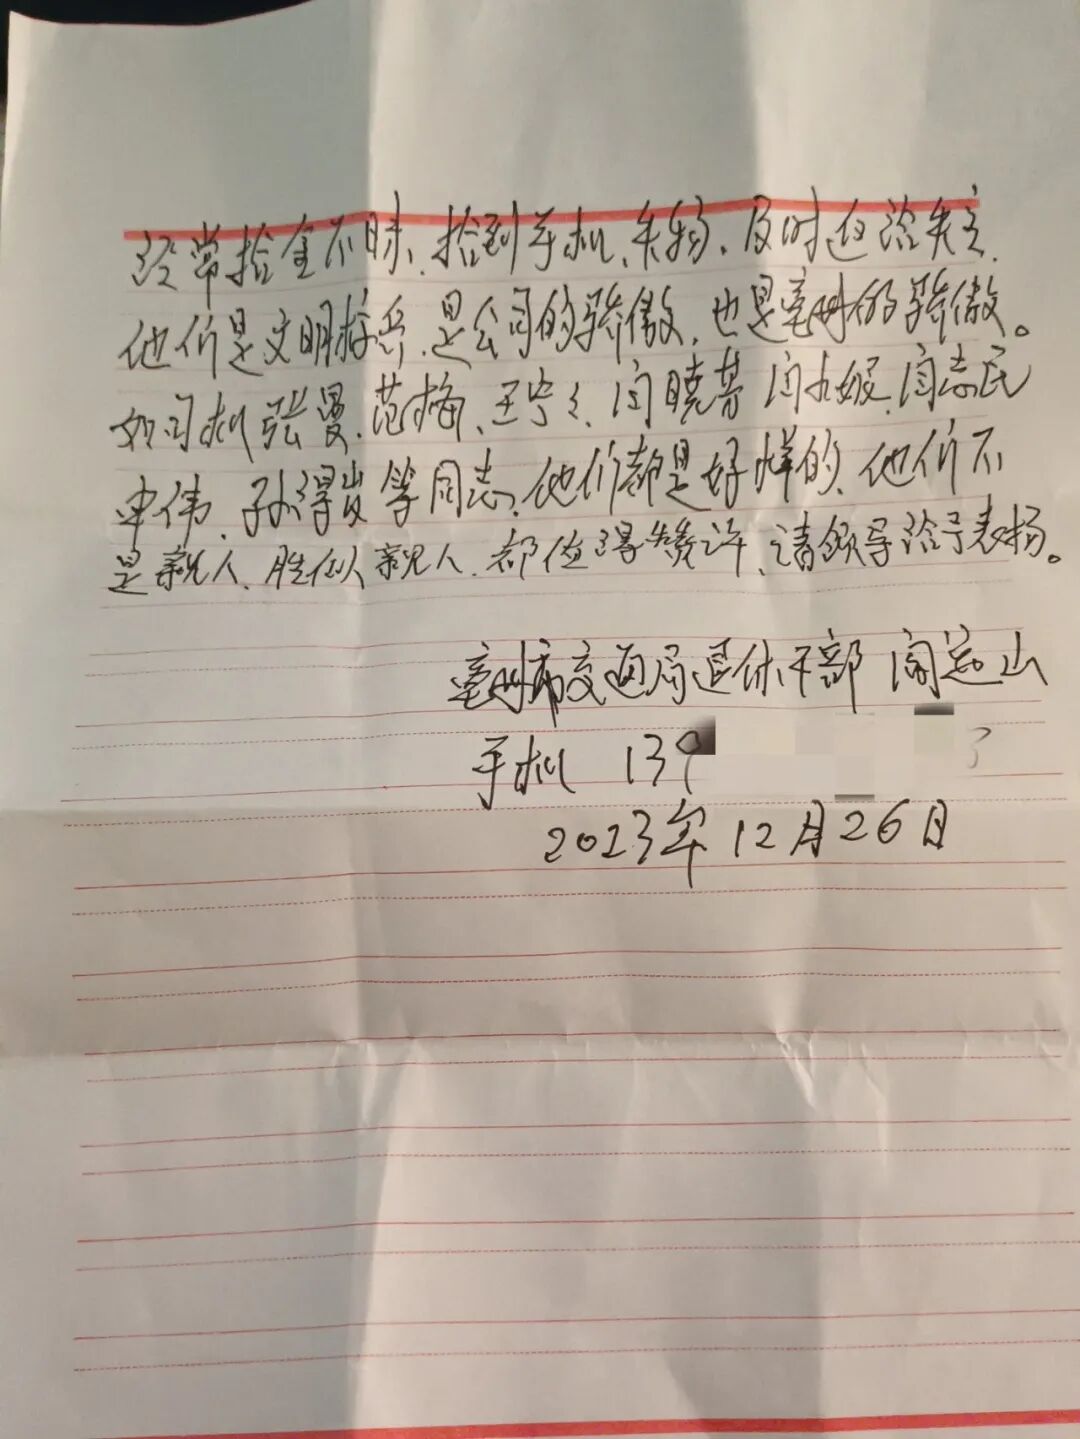 经常拾金不昧、拾到手机、失物、及时返给失主、
他们是文明标兵、是公司的骄傲、也是亳州的骄傲。
如司机张曼、范梅、王宁宁、闫晓 闫九妮、闫志民
申伟、孙得岁等同志、他们都是好样的、他们不
是亲人、胜似亲人、都值得赞许、请领导给予表扬。
亳州市交通局退休干部 闫 山
手机 139
2023年12月26日